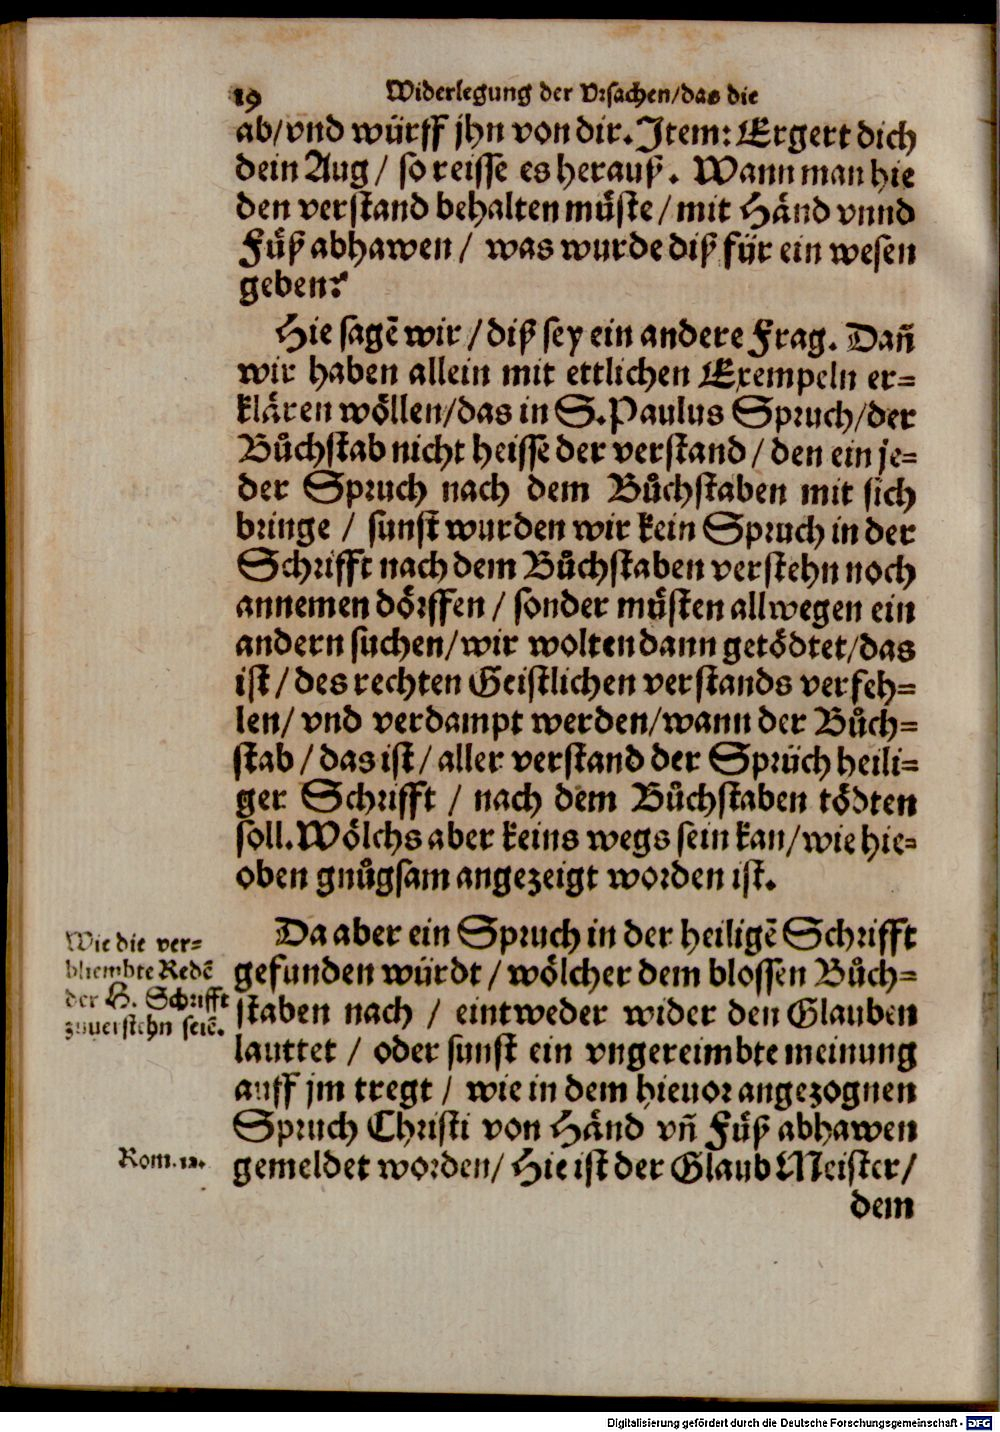 19 Widerlegung der Vrsachen/das die
ab/vnd würff jhn von dir. Item: Ergert dich
dein Aug / so reisse es herauß. Wann man hie
den verstand behalten müste / mit Händ vnnd
Füß abhawen / was wurde diß für ein wesen
geben?
Hie sagē wir / diß sey ein andere Frag. Dañ
wir haben allein mit ettlichen Exempeln er=
klären wöllen/das in S. Paulus Spruch/der
Bůchstab nicht heisse der verstand / den ein je=
der Spruch nach dem Bůchstaben mit sich
bringe / sunst wurden wir kein Spruch in der
Schrifft nach dem Bůchstaben verstehn noch
annemen dörffen / sonder müsten allwegen ein
andern suchen/wir wolten dann getödtet/das
ist / des rechten Geistlichen verstands verfeh=
len/ vnd verdampt werden/wann der Bůch=
stab / das ist / aller verstand der Sprüch heili=
ger Schrifft / nach dem Bůchstaben tödten
soll. Wölchs aber keins wegs sein kan/wie hie=
oben gnůgsam angezeigt worden ist.
Da aber ein Spruch in der heiligē Schrifft
gefunden würdt / wölcher dem blossen Bůch=
staben nach / eintweder wider den Glauben
lauttet / oder sunst ein vngereimbte meinung
auff jm tregt / wie in dem hieuor angezognen
Spruch Christi von Händ vñ Füß abhawen
gemeldet worden/ Hie ist der Glaub Meister/
dem
Wie die ver=
bliembte Redē
der H. Schrifft
zuuerstehn seiē.
Rom. 12.
Digitalisierung gefördert durch die Deutsche Forschungsgemeinschaft - DFG